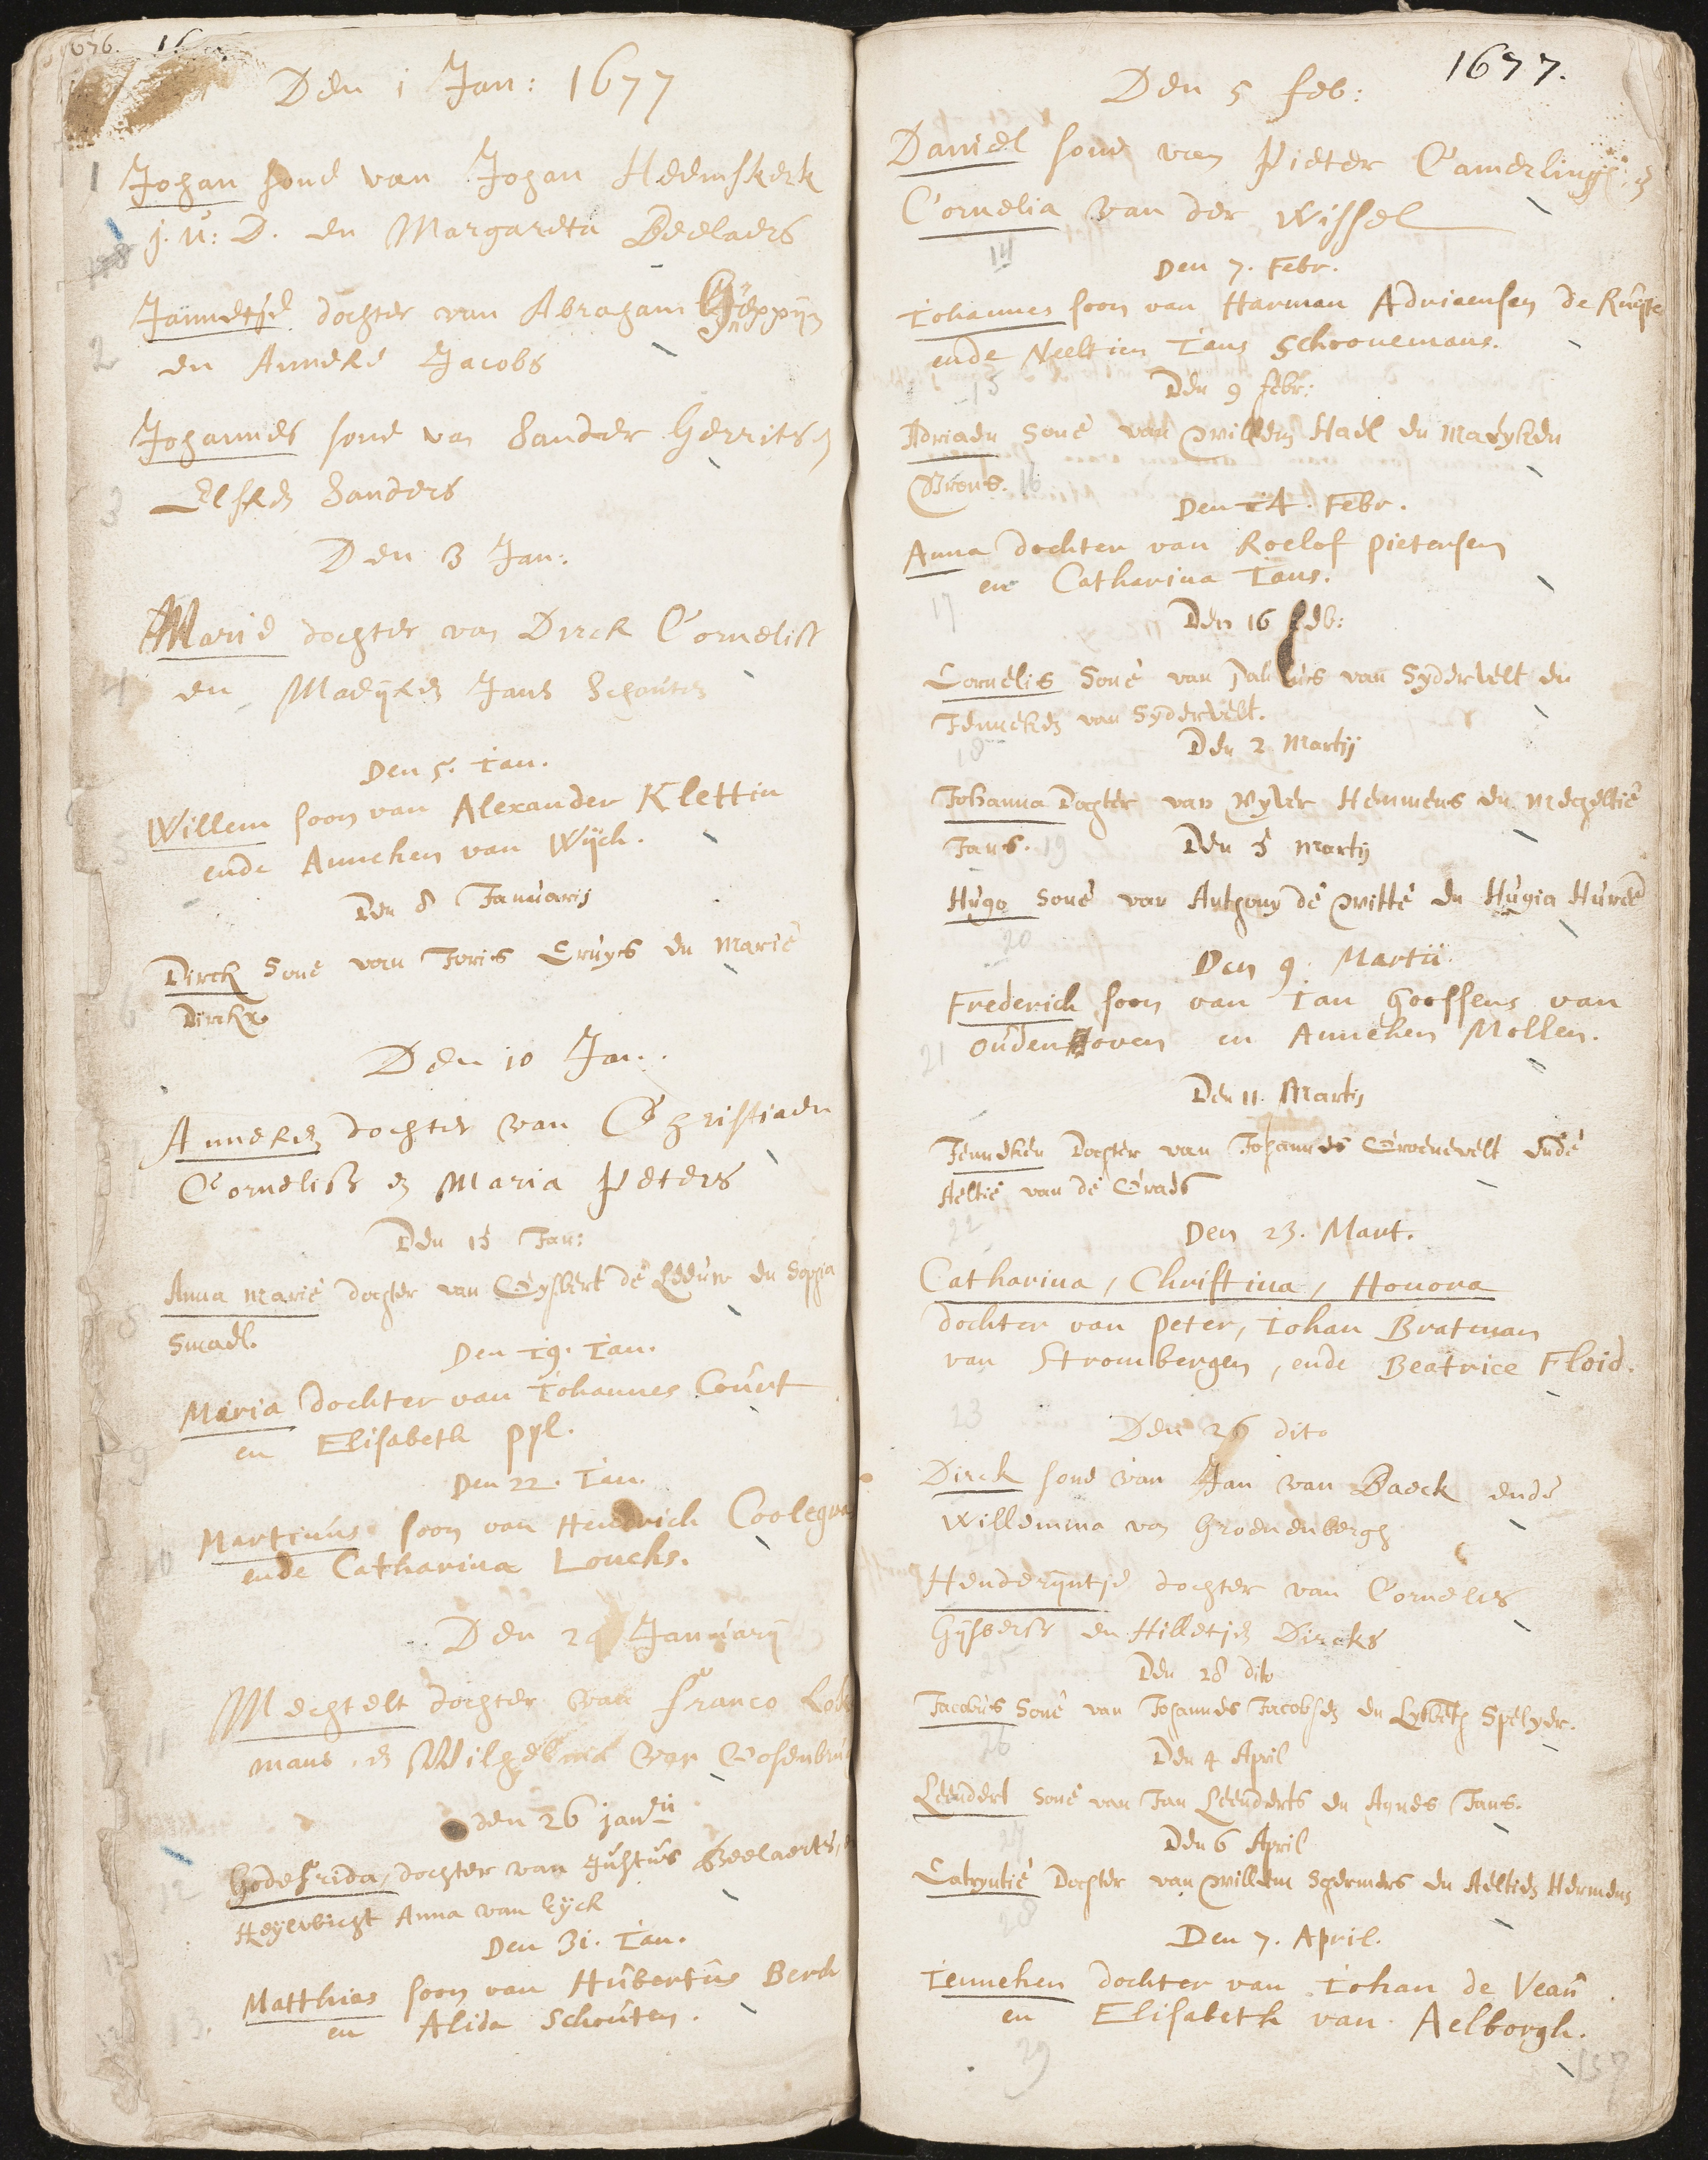 Den 1 Jan: 1677
1 Johan sone van Johan Heemskerk
j. u: D. en Margareta Beelaers
Jannetje dochter van Abraham
2 en Anneke Jacobs
Johannes sone van Sander Gerrits en
3 Elsken Sanders
Den 3 Jan:
Marie dochter van Dirck Corneliss
4 en Maeijken Jans Schouten
Den 5. Ian.
Willem soon van Alexander Klettin
ende Anneken van Wijck.
Den 8 Januarij
Dirck Sone van Joris Cruijs en Marie
6 Dirckx
Den 10 Jan.
Anneken dochter van Christiaen
Corneliss en Maria Peters
Den 15 Jan:
Anna Marie dochter van Gysbert de Leeuw en Sophia
8 Smael.
Den 19. Ian.
Maria dochter van Iohannes Court
9 en Elisabeth Pyl.
Den 22. Ian.
Martinus soon van Hendrick
10 ende Catharina Loncks.
Den 24 Januarij
Mechtelt dochter van Franco
11 mans en Wilhelma van
den 26 janrii
Godefrida, dochter van Justus Beelaerts,
12 Heijlwicht Anna van Eijck
Den 31. Ian.
Matthias soon van Hubertus Berck
13. en Alida Schouten.
1677.
Den 5 feb:
Daniel sone van Pieter Camerlingh en
Cornelia van der Wissel
14
Den 7. Febr.
Iohannes soon van Harman Adriaensen de Ruyte
ende Neeltien Ians Schoonemans.
15 Den 9 febr:
Adriaen Sone van Willem Hael en Maryken
16
Den 14. Febr.
Anna dochter van Roelof Pietersen
en Catharina Ians.
17 Den 16 feb:
Cornelis Sone van Paulus van Sydervelt en
Jenneken van Sydervelt.
18 Den 2 Martij
Johanna Dochter van Ryver Hemmens en Mecheltie
Jans. 19 Den 5 Martij
Hugo Sone van Anthony de Witte en Hugia
20
Den 9. Martii
Frederick soon van Ian Goossens van
21 Oudenhoven en Anneken Mollen.
Den 11. Martij
Jenneken Dochter van Johannes Groenevelt ende
Aeltie van de Graes
22 Den 23. Mart.
Catharina, Christina, Honora
dochter van Peter, Iohan Bratman
van Strombergen, ende Beatrice Floid.
23
Den 26 dito
Dirck sone van Jan van Baeck ende
Willemina van Groenenbergh
24
Henderijntje dochter van Cornelis
Gijsberts en Hilletje Dircks
25 Den 28 dito
Jacobus Sone van Johannes Jacobsen en Lysbeth Spelyer.
26 Den 4 April
Leendert Sone van Jan Leenderts en Agnes Jans.
27 Den 6 April
Catryntie Dochter van Willem Schermers en Aeltie Hermens
28
Den 7. April.
Ienneken dochter van Iohan de Veau
en Elisabeth van Aelborgh.
29
157